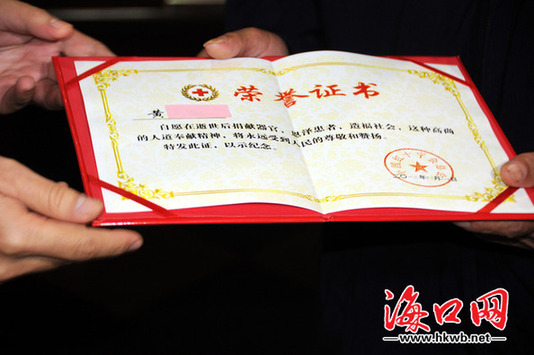 荣誉证书
黄
自愿在逝世后捐献器官，惠泽患者，造福社会，这种高尚
的人道奉献精神，将永远受到人民的尊敬和赞扬。
特发此证，以示纪念。
海口网
www.hkwb.net